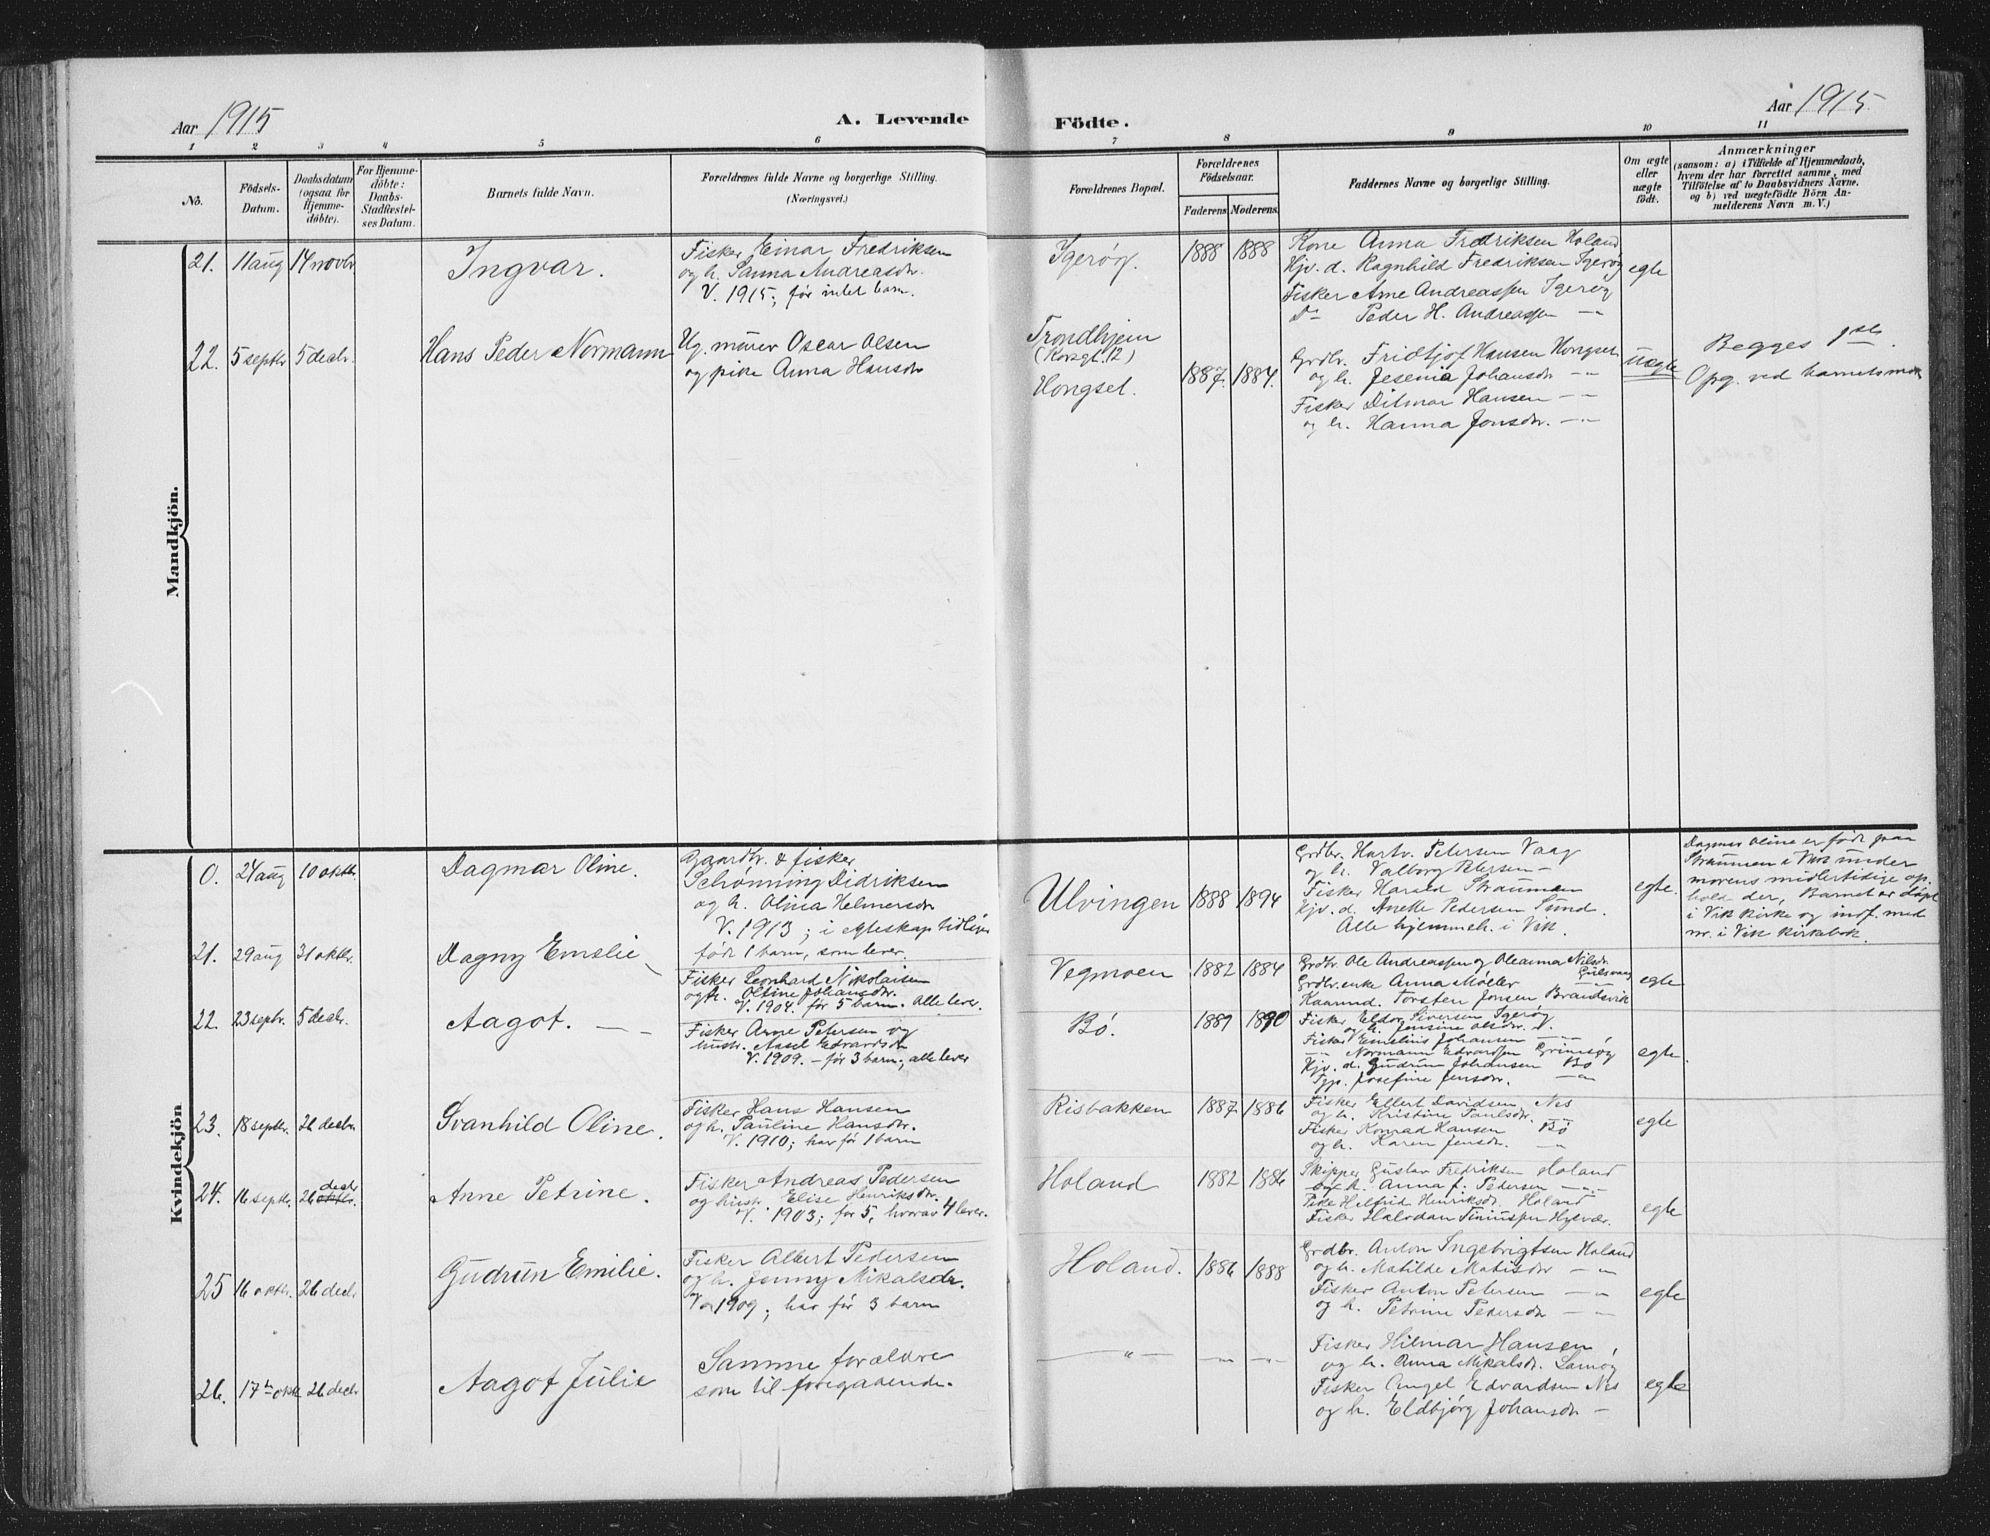 Aar 1915
A. Levende
Födte.
Aar 1915.
1 2 3 4 5 6 7 8 9 10 11
No.
Födsels-
Datum.
Daabsdatum
(ogsaa for
Hjemme-
döbte).
For Hjemme-
döbte:
Daabs-
Stadfæstel-
ses Datum.
Barnets fulde Navn.
Forældrenes fulde Navne og borgerlige Stilling.
(Næringsvei.)
Forældrenes Bopæl.
Forældrenes
Födselsaar.
Faderens. Moderens.
Faddernes Navne og borgerlige Stilling.
Om ægte
eller
uægte
födt.
Anmærkninger
(saasom: a) i Tilfælde af Hjemmedaab,
hvem der har forrettet samme, med
Tilföielse af to Daabsvidners Navne,
og b) ved uægtefödte Börn An-
melderens Navn m. V.)
Mandkjön.
21. 11 aug 14 novbr. Ingvar.
Fisker Einar Fredriksen
og h. Sanna Andreasdr.
V. 1915; før intet barn.
Igerøy. 1888 1888
Kone Anna Fredriksen Holand
Hjv. d. Ragnhild Fredriksen Igerøy
Fisker Arne Andreassen Igerøy
Do Peder H. Andreassen —"—
egte
22. 5 septbr. 5 decbr. Hans Peder Normann
Ug. murer Oscar Olsen
og pike Anna Hansdr
Trondhjem
(Korsgt. 12)
Hongset.
1887. 1884.
Grdbr. Fridtjof Hansen Hongset
og h. Jesenia Johansdr —"—
Fisker Ditmar Hansen —"—
og h. Hanna Jonsdr. —"—
uægte
Begges 1ste.
Opg. ved barnets mor
Kvindekjön
0. 24 aug 10 oktbr. Dagmar Oline.
Gaardbr. & fisker
Schønning Didriksen
og h. Olina Helmersdr
V. 1913; i egteskap tidligere
født 1 barn, som lever.
Ulvingen 1888 1894
Grdbr. Hartv. Petersen Vaag
og h. Valborg Petersen —
Fisker Harald Straumen
Hjv. d. Anette Pedersen Sund.
Alle hjemmeh. i Vik.
egte.
Dagmar Oline er født paa
Straumen i Vik under
morens midlertidige op-
hold der, Barnet er døpt
i Vik kirke og indf. med
nr. i Vik kirkebok.
21. 29 aug 31 oktbr. Dagny Emelie
Fisker Leonhard Nikolaisen
og h. Oltine Johansdr.
V. 1904. før 5 barn. Alle lever.
Vegmoen 1882 1884
Grdbr. Ole Andreassen og Oleanna Nilsdr.
Gulsvaag
Grdbr.enke Anna Møller
Kaarmd. Torsten Jonsen Brandsvik
egte
22. 23 septbr. 5 decbr. Aagot. — —
Fisker Arne Petersen og
hustr. Aasel Edvardsdr
V. 1909. — før 3 barn; alle lever
Bø. 1889 1890
Fisker Eldor Siversen Igerøy
og h. Jensine Olsdr. —"—
Fisker Emelius Johansen — —
—"— Normann Edvardsen Grimsøy
Hjv. d. Gudrun Johansen Bø
Typ. Josefine Jensdr. —"—
egte.
23. 18 septbr. 26 decbr. Svanhild Oline.
Fisker Hans Hansen
og h. Pauline Hansdr.
V. 1910; har før 1 barn
Risbakken 1887 1886
Fisker Ellert Davidsen Nes
og h. Kristine Paulsdr. —"—
Fisker Konrad Hansen Bø
og h. Karen Jensdr. —"—
egte
24. 16 septbr. 26 decbr. oktbr. Anne Petrine.
Fisker Andreas Pedersen
og hust. Elise Henriksdr.
V. 1903; før 5, hvorav 4 lever.
Holand 1882 1886
Skipper Gustav Fredriksen Holand
og h. Anna J. Petersen —"—
Pike Helfrid Henriksdr. Holand
Fisker Halvdan Tiniussen Hysvær.
egte
25 16 oktbr. 26 decbr Gudrun Emilie.
Fisker Albert Pedersen
og h. Jenny Mikalsdr.
V. 1909; har før 3 barn
Holand. 1886 1888
Grdbr. Anton Ingebrigtsen Holand
og h. Matilde Matisdr —"—
Fisker Anton Petersen —"—
og h. Petrine Pedersdr —"—
egte
26. 17 oktbr 26 decbr Aagot Julie
Samme forældre
som til foregaaende.
—"— —"— —"—
Fisker Hilmar Hansen,
og h. Anna Mikalsdr. Lamøy
Fisker Angel Edvardsen Nes
og h. Eldbjørg Johansdr —
egte